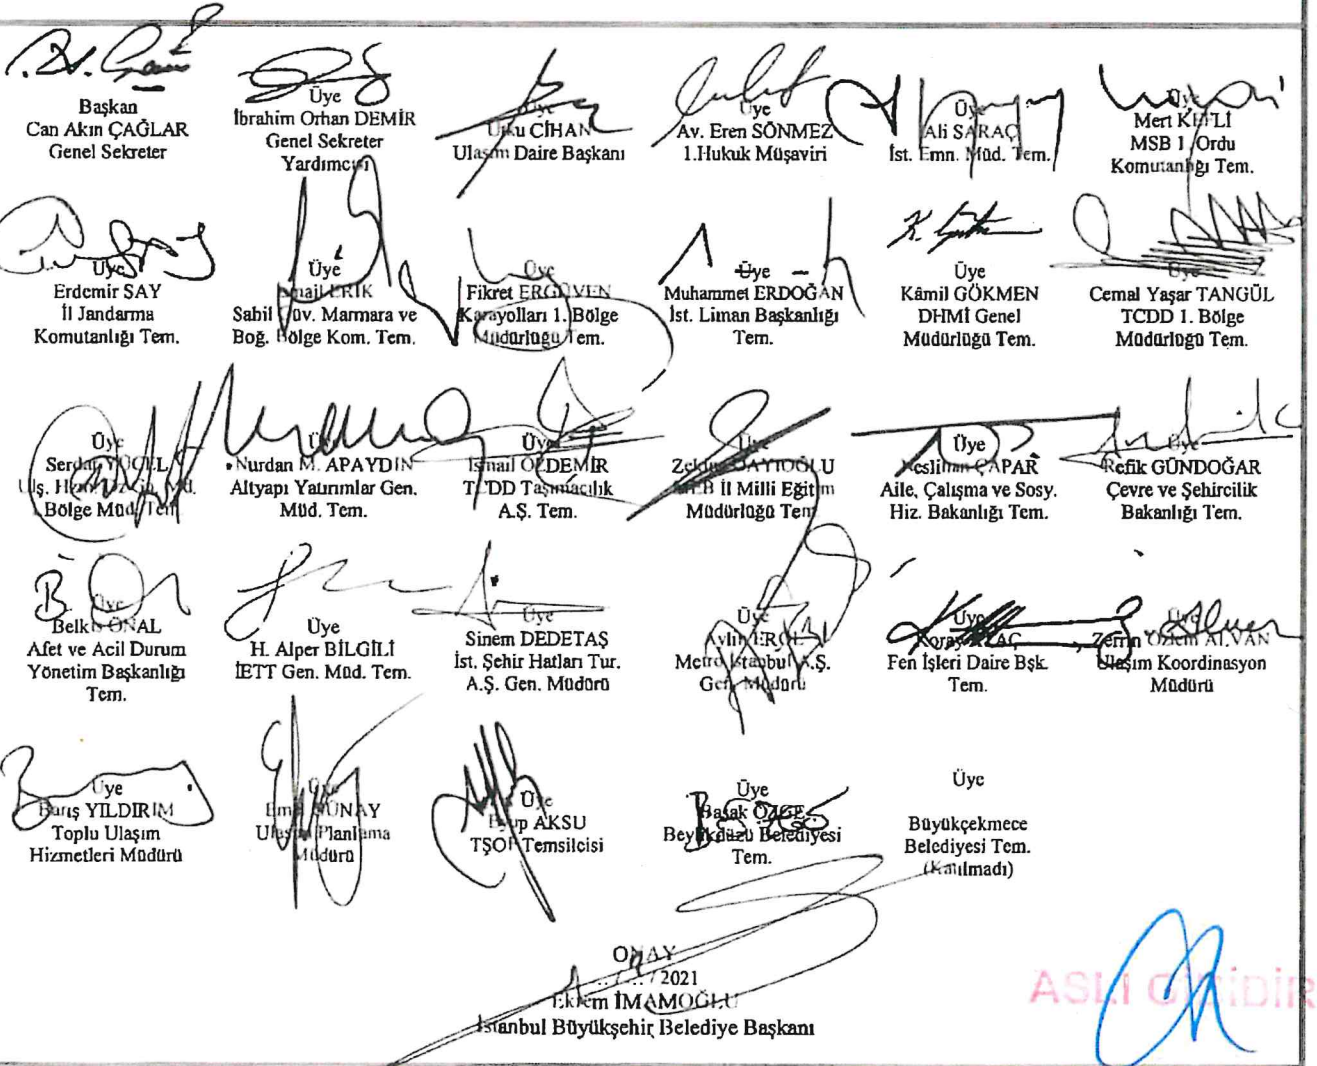 Başkan
Can Akın ÇAĞLAR
Genel Sekreter
Üye
İbrahim Orhan DEMİR
Genel Sekreter
Yardımcısı
Üye
Utku CİHAN
Ulaşım Daire Başkanı
Üye
Av. Eren SÖNMEZ
1.Hukuk Müşaviri
Üye
Ali SARAÇ
İst. Emn. Müd. Tem.
Üye
Mert
MSB 1. Ordu
Komutanlığı Tem.
Üye
Erdemir SAY
İl Jandarma
Komutanlığı Tem.
Üye
İsmail ERİK
Sahil Güv. Marmara ve
Boğ. Bölge Kom. Tem.
Üye
Fikret ERGÜVEN
Karayolları 1. Bölge
Müdürlüğü Tem.
Üye
Muhammet ERDOĞAN
İst. Liman Başkanlığı
Tem.
Üye
Kâmil GÖKMEN
DHMİ Genel
Müdürlüğü Tem.
Üye
Cemal Yaşar TANGÜL
TCDD 1. Bölge
Müdürlüğü Tem.
Üye
Serdar YÜCEL
Ulş.
Bölge Müd. Tem.
Üye
Nurdan M. APAYDIN
Altyapı Yatırımlar Gen.
Müd. Tem.
Üye
İsmail ÖZDEMİR
TCDD Taşımacılık
A.Ş. Tem.
Üye
MEB İl Milli Eğitim
Müdürlüğü Tem.
Üye
Neslihan ÇAPAR
Aile, Çalışma ve Sosy.
Hiz. Bakanlığı Tem.
Üye
Refik GÜNDOĞAR
Çevre ve Şehircilik
Bakanlığı Tem.
Üye
Belkıs ÖNAL
Afet ve Acil Durum
Yönetim Başkanlığı
Tem.
Üye
H. Alper BİLGİLİ
İETT Gen. Müd. Tem.
Üye
Sinem DEDETAŞ
İst. Şehir Hatları Tur.
A.Ş. Gen. Müdürü
Üye
Metro İstanbul A.Ş.
Gen. Müdürü
Üye
Koray
Fen İşleri Daire Bşk.
Tem.
Üye
Ulaşım Koordinasyon
Müdürü
Üye
Barış YILDIRIM
Toplu Ulaşım
Hizmetleri Müdürü
Üye
Ulaşım Planlama
Müdürü
Üye
Eyup AKSU
TŞOF Temsilcisi
Üye
Başak ÖZGE
Beylikdüzü Belediyesi
Tem.
Üye
Büyükçekmece
Belediyesi Tem.
(Katılmadı)
ONAY
../../2021
Ekrem İMAMOĞLU
İstanbul Büyükşehir Belediye Başkanı
ASLI GİBİDİR